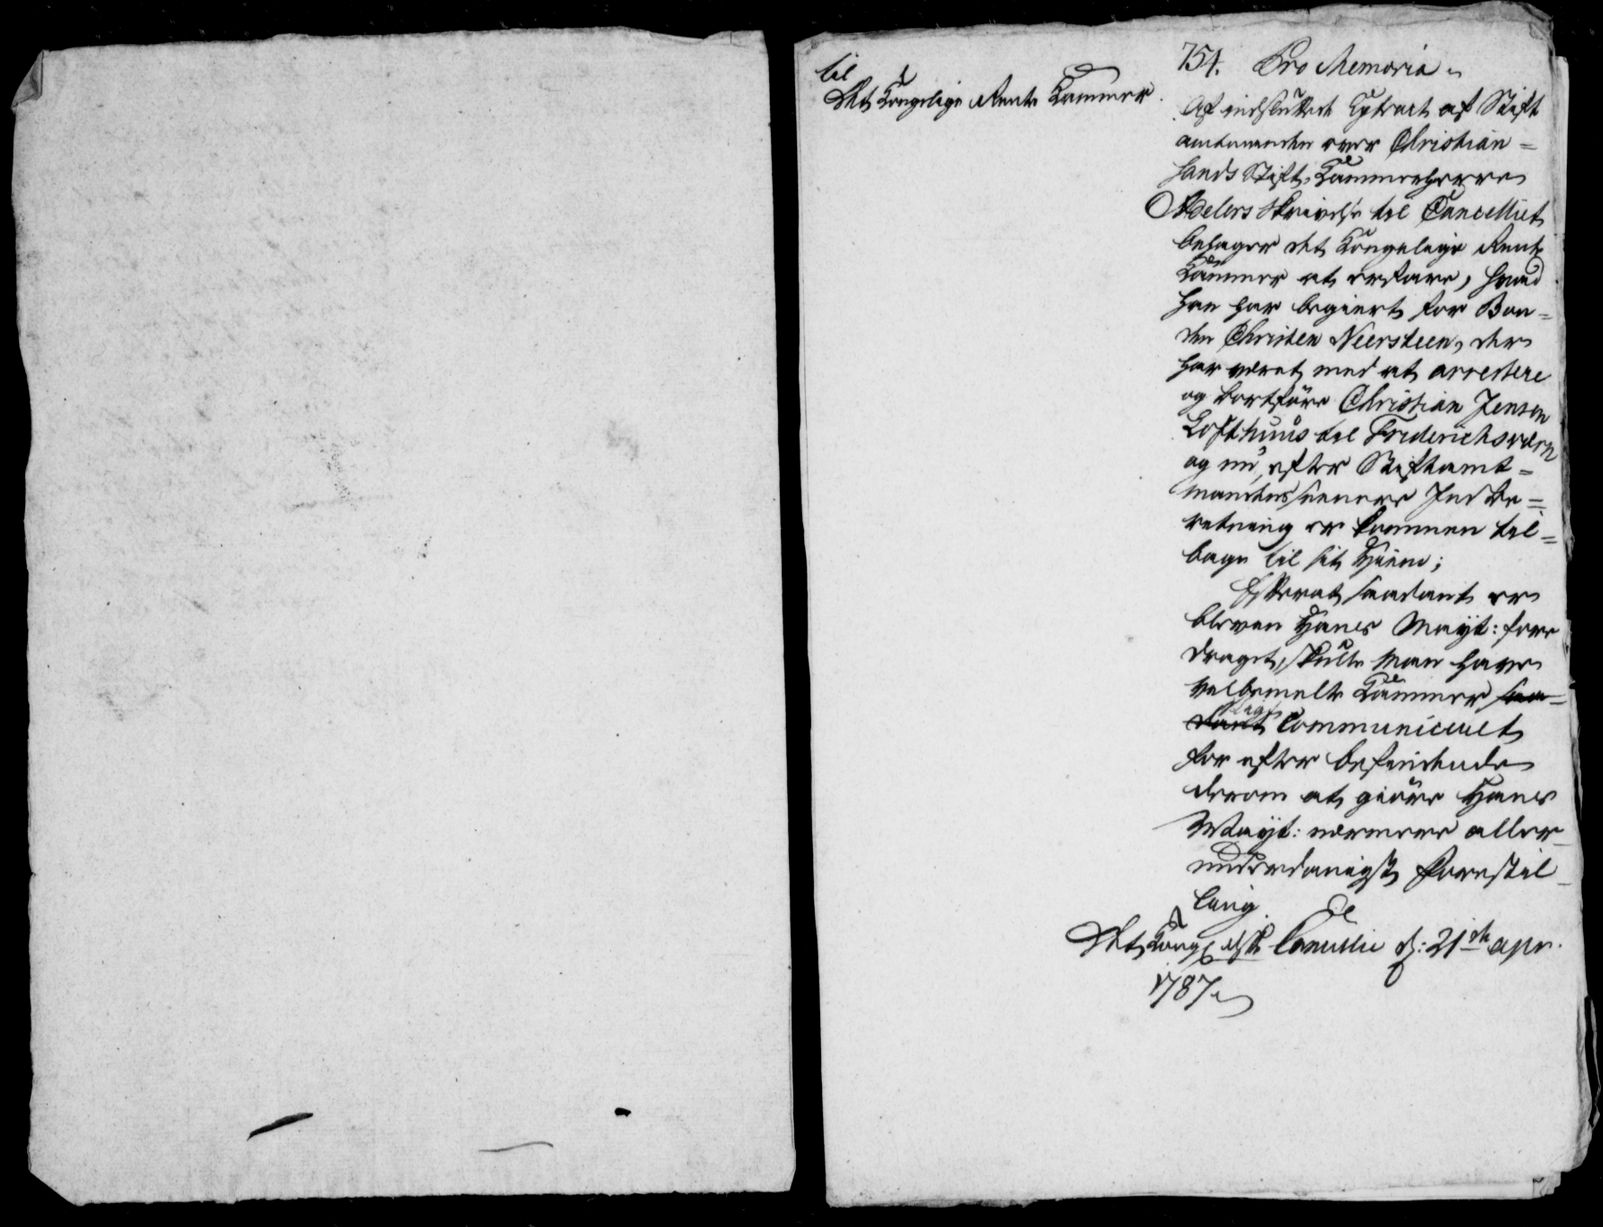 til
Det Kongelige Rente Kammer
754. Pro Memoria
Af indsluttede Extract af Stift
amtmanden over Christian=
sands Stift, Kammerherre
Adelers Skrivelse til Cancelliet
behager det Kongelige Rente
Kammer at erfare, hvad
han har begiert for Bon=
den Christen Neersteen, der
har været med at arrestere
og bortføre Christian Jensen
Lofthuus til Friderichsværn
og nu, efter Stiftamt=
mandens seenere Indbe=
retning er kommen til=
bage til sit Hiem;
Efterat saadant er
bleven Hans Mayt: fore
draget, skulle man have
velbemelte Kammer saa=
dant communiceret
for efter befindende
derom at giøre Hans
Mayt: nærmere aller
underdanigst Forestil
ling.
Det Kong: dske Cancellie d: 21de apr.
1787.